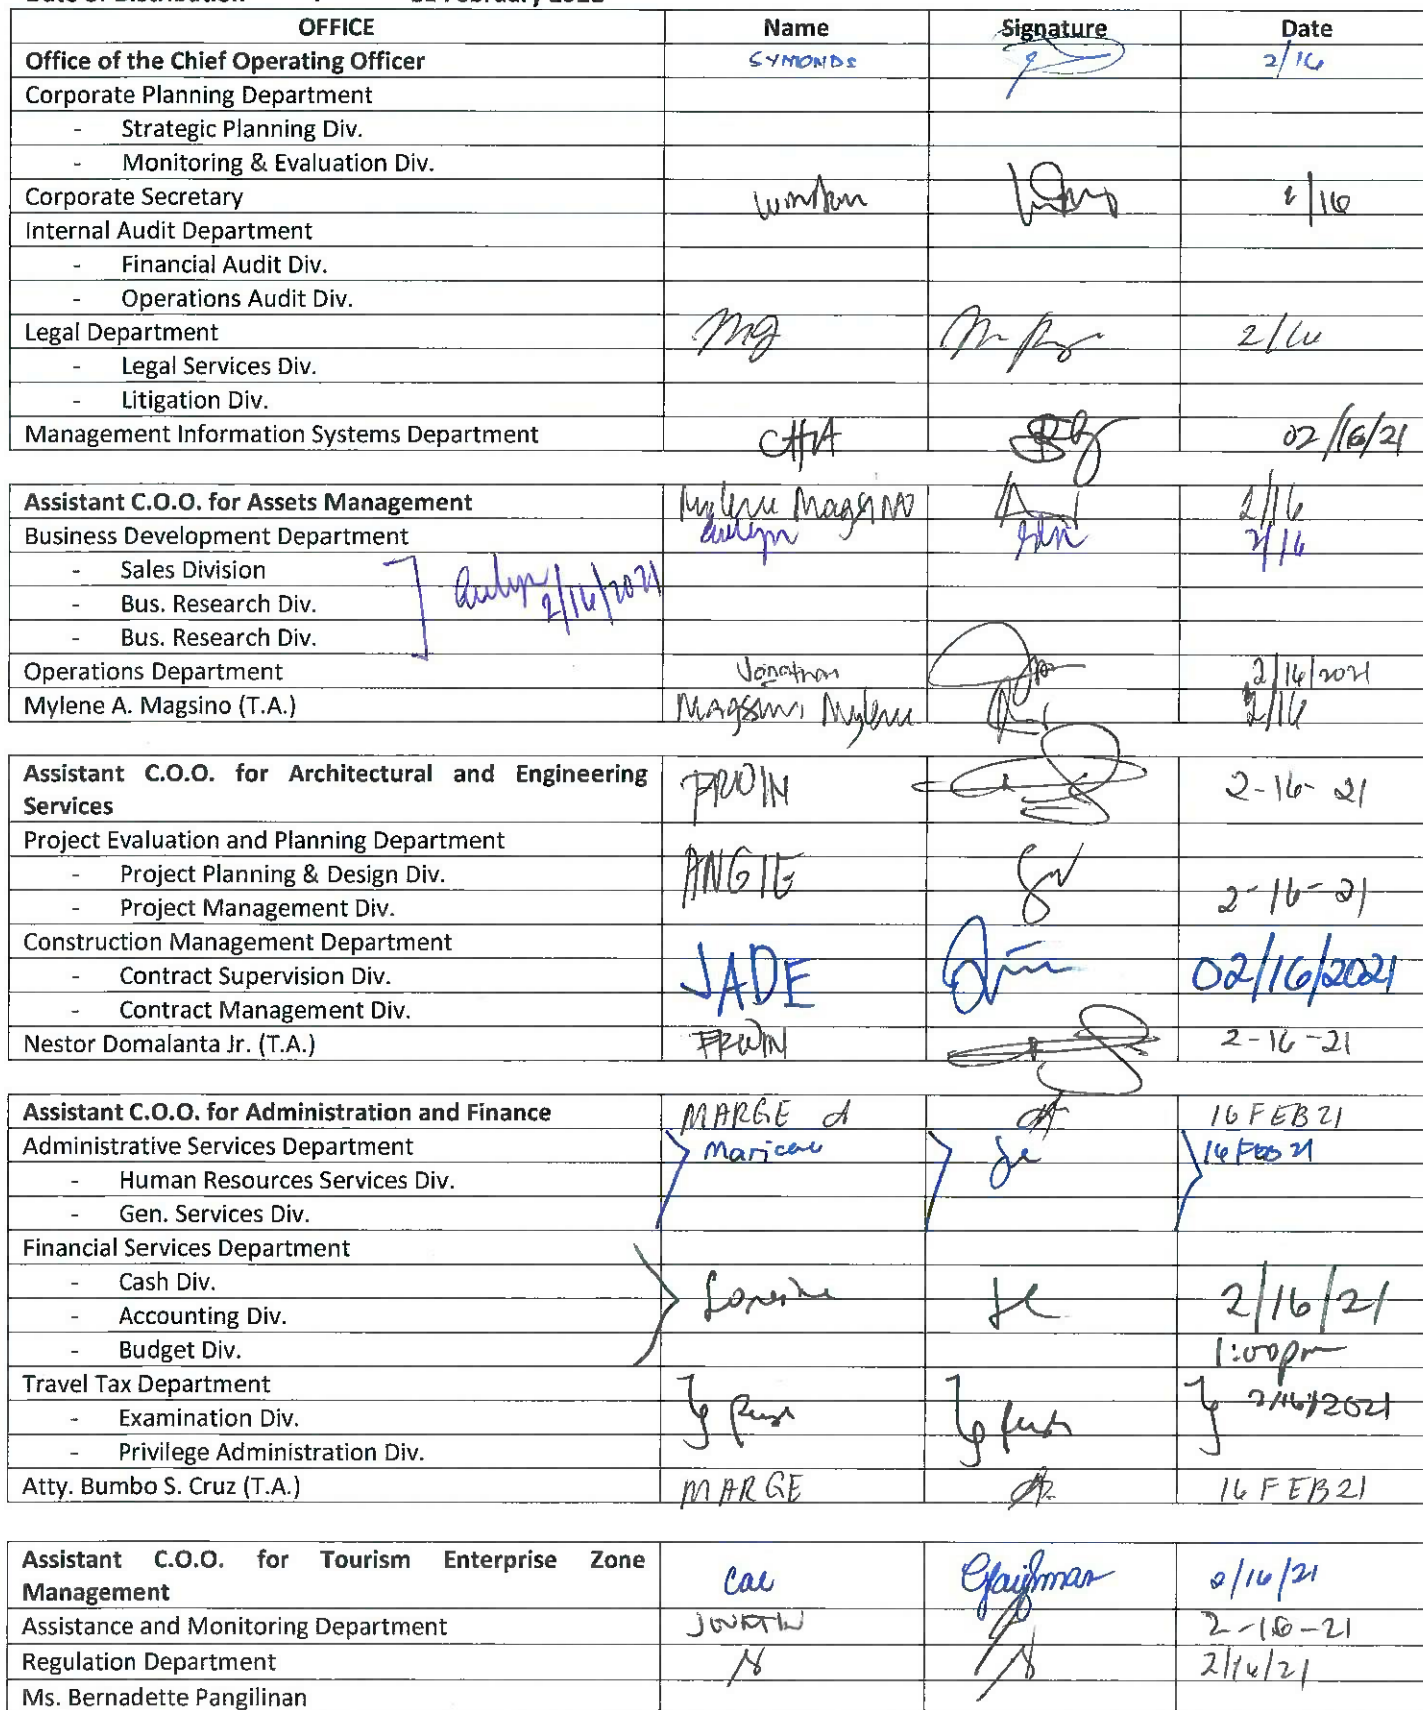 OFFICE Name Signature Date
Office of the Chief Operating Officer SYMONDS 2/16
Corporate Planning Department
- Strategic Planning Div.
- Monitoring & Evaluation Div.
Corporate Secretary 2/16
Internal Audit Department
- Financial Audit Div.
- Operations Audit Div.
Legal Department 2/16
- Legal Services Div.
- Litigation Div.
Management Information Systems Department CHA 02/16/21
Assistant C.O.O. for Assets Management Mylene Magsino 2/16
Business Development Department 2/16
- Sales Division
- Bus. Research Div. 2/16/2021
- Bus. Research Div.
Operations Department Jonathan 2/16/2021
Mylene A. Magsino (T.A.) Magsino Mylene 2/16
Assistant C.O.O. for Architectural and Engineering
Services ERWIN 2-16-21
Project Evaluation and Planning Department
- Project Planning & Design Div. ANGIE
- Project Management Div. 2-16-21
Construction Management Department
- Contract Supervision Div. JADE 02/16/2021
- Contract Management Div.
Nestor Domalanta Jr. (T.A.) ERWIN 2-16-21
Assistant C.O.O. for Administration and Finance MARGE 16 FEB 21
Administrative Services Department 16 FEB 21
- Human Resources Services Div.
- Gen. Services Div.
Financial Services Department
- Cash Div. 2/16/21
- Accounting Div.
- Budget Div. 1:00pm
Travel Tax Department 2/16/2021
- Examination Div.
- Privilege Administration Div.
Atty. Bumbo S. Cruz (T.A.) MARGE 16 FEB 21
Assistant C.O.O. for Tourism Enterprise Zone
Management 2/16/21
Assistance and Monitoring Department 2-16-21
Regulation Department 2/16/21
Ms. Bernadette Pangilinan